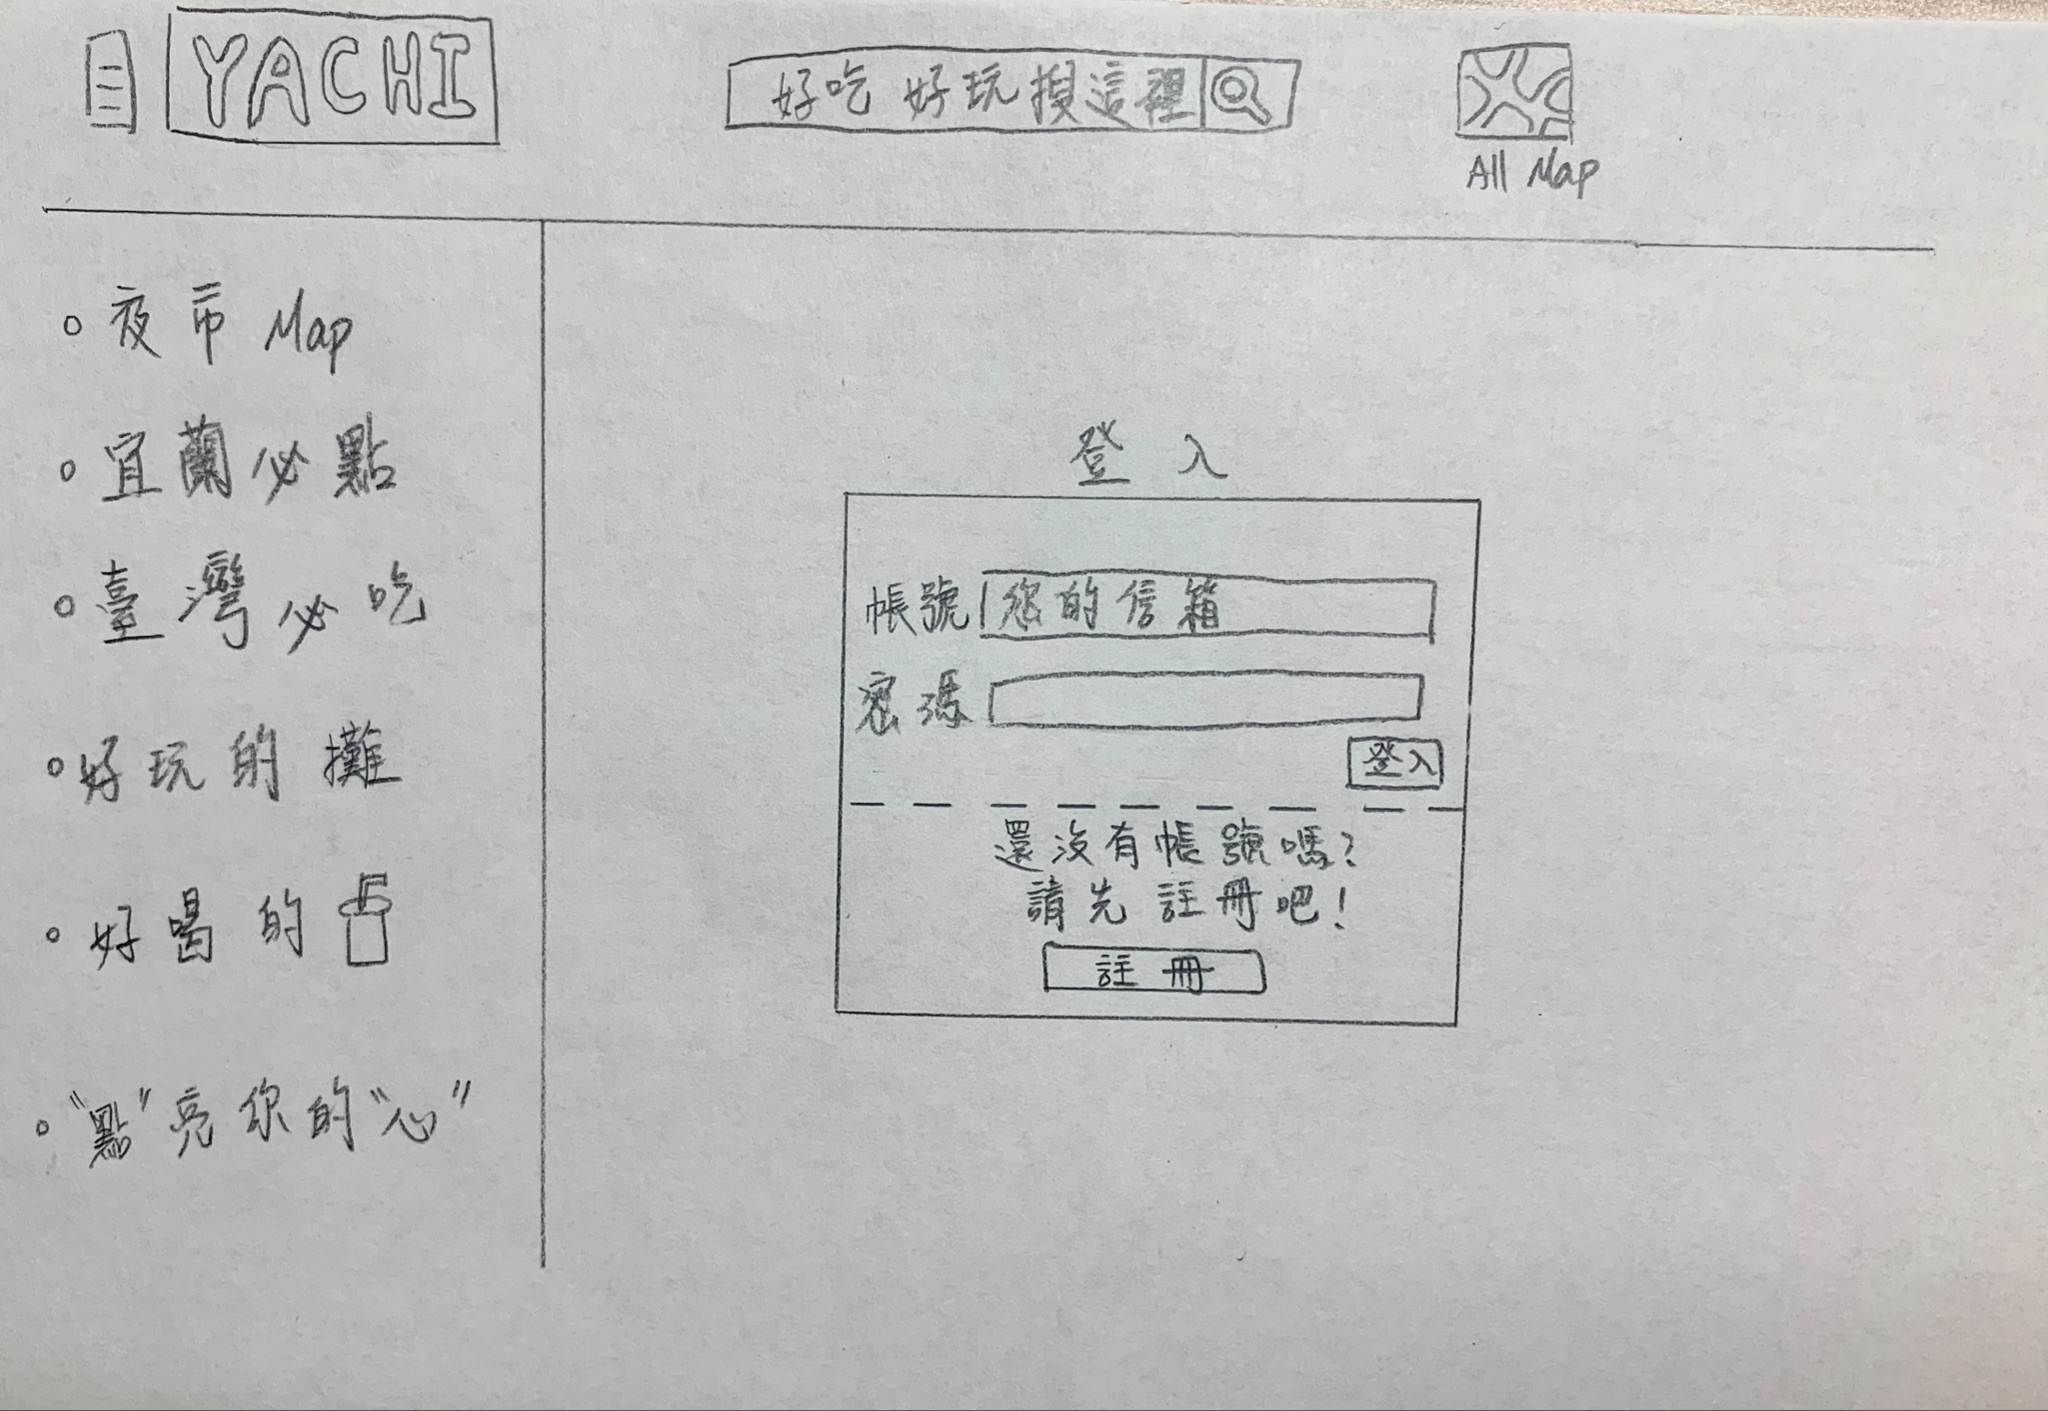 YACHI
好吃 好玩搜這裡
All Map
夜市 Map
宜蘭必點
臺灣必吃
好玩的攤
好喝的
"點"亮你的"心"
登入
帳號 您的信箱
密碼
登入
還沒有帳號嗎?
請先註冊吧!
註冊